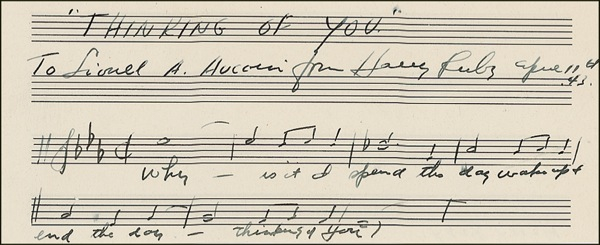 "THINKING OF YOU"
To Lionel A. from Harry Ruby April 11th
43.
Why — is it I spend the day wake up &
end the day — thinking of You?